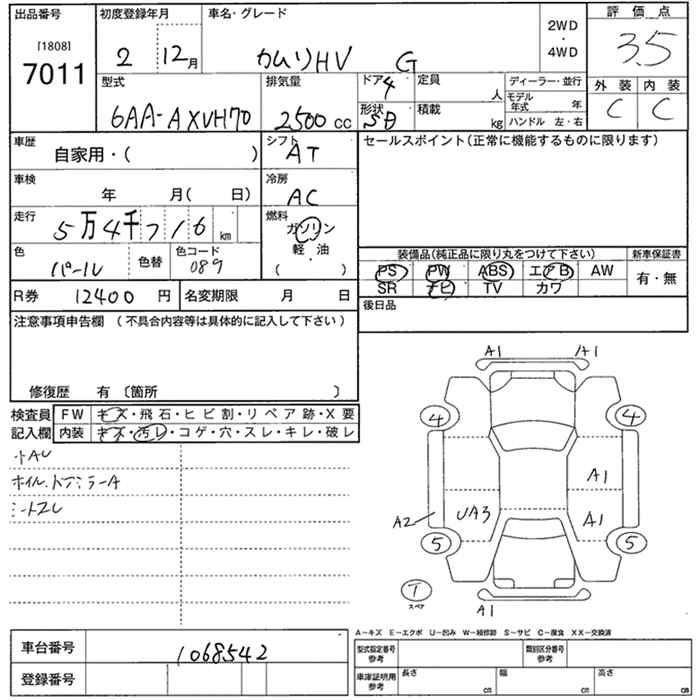 出品番号 初度登録年月 車名・グレード 2WD・4WD 評価点
[1808]
7011 2 12月 カムリHV G 3.5
型式 排気量 ドア 4 定員 人 ディーラー・並行 外装 内装
6AA-AXVH70 2500cc 形状 SD 積載 kg モデル年式 年 C C
ハンドル 左・右
車歴 自家用・( ) シフト AT セールスポイント(正常に機能するものに限ります)
車検 年 月( 日) 冷房 AC
走行 5万4千716km 燃料 ガソリン
軽・油
( )
色 パール 色替 色コード 089
装備品(純正品に限り丸をつけて下さい) 新車保証書
PS PW ABS エアB AW 有・無
SR ナビ TV カワ
R券 12400円 名変期限 月 日 後日品
注意事項申告欄 (不具合内容等は具体的に記入して下さい)
修復歴 有 〔箇所 〕
検査員 FW キズ・飛石・ヒビ割・リペア跡・X要
記入欄 内装 キズ・汚レ・コゲ・穴・スレ・キレ・破レ
小AU
ホイル、ドアミラーA
シートスレ
A1 A1
4 4
A1
A2 UA3 A1
5 5
T
スペア
A1
A-キズ E-エクボ U-凹み W-補修跡 S-サビ C-腐食 XX-交換済
車台番号 1068542 型式指定番号 参考 類別区分番号 参考
登録番号 車庫証明用 参考 長さ cm 幅 cm 高さ cm